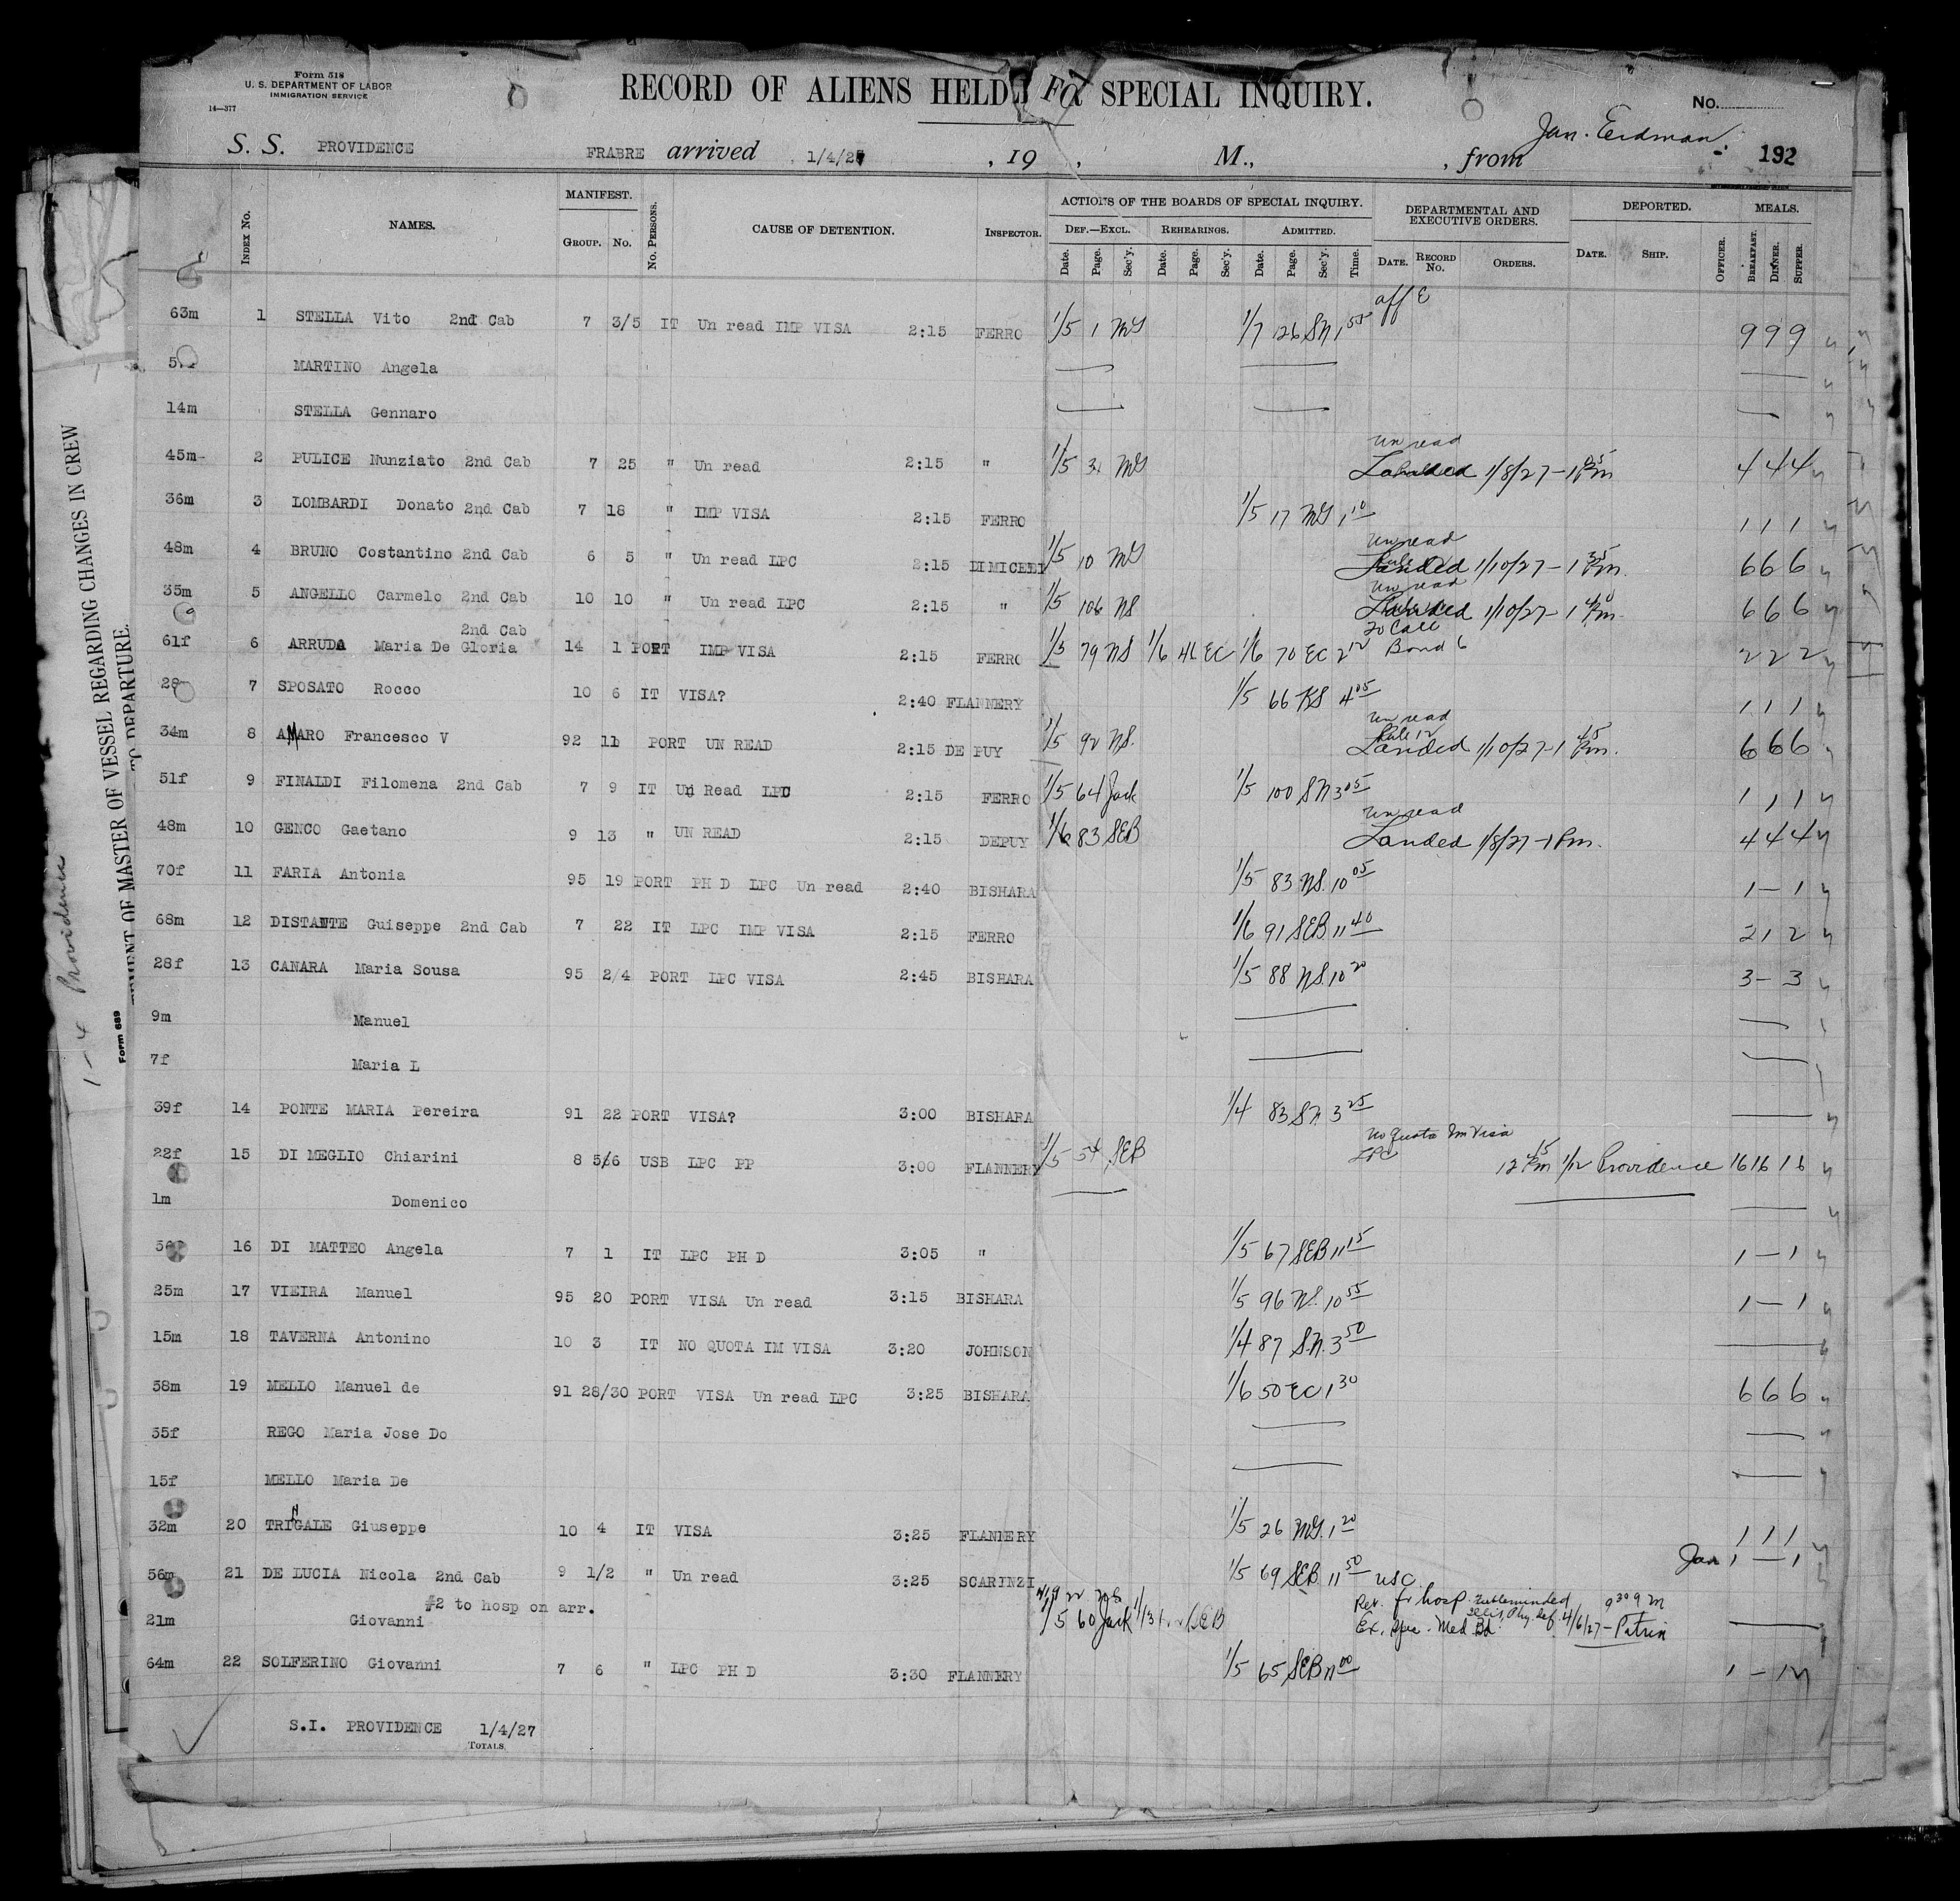 Form 518
U. S. DEPARTMENT OF LABOR
IMMIGRATION SERVICE
14—377
RECORD OF ALIENS HELD FOR SPECIAL INQUIRY.
No.
Jan. Erdman
S. S. PROVIDENCE FRABRE arrived 1/4/27 , 19 , M., , from 192
Index No. NAMES. MANIFEST. Group. No. No. Persons. CAUSE OF DETENTION. Inspector. ACTIONS OF THE BOARDS OF SPECIAL INQUIRY. Def.—Excl. Date. Page. Sec'y. Rehearings. Date. Page. Sec'y. Admitted. Date. Page. Sec'y. Time. DEPARTMENTAL AND EXECUTIVE ORDERS. Date. Record No. Orders. DEPORTED. Date. Ship. Officer. MEALS. Breakfast. Dinner. Supper.
63m 1 STELLA Vito 2nd Cab 7 3/5 IT Un read IMP VISA 2:15 FERRO 1/5 1 MG 1/7 126 SN 1 55 aff E 9 9 9
MARTINO Angela
14m STELLA Gennaro
45m 2 PULICE Nunziato 2nd Cab 7 25 " Un read 2:15 " 1/5 MG un read Landed 1/8/27 - 1 Pm 4 4 4
36m 3 LOMBARDI Donato 2nd Cab 7 18 " IMP VISA 2:15 FERRO 1/5 17 MG 1 10 1 1 1
48m 4 BRUNO Costantino 2nd Cab 6 5 " Un read LPC 2:15 DIMICELI 1/5 10 MG un read Landed 1/10/27 - 1 35 Pm. 6 6 6
35m 5 ANGELLO Carmelo 2nd Cab 10 10 " Un read LPC 2:15 " 1/5 106 NS un read Landed 1/10/27 - 1 40 Pm 6 6 6
61f 6 ARRUDA Maria De Gloria 2nd Cab 14 1 PORT IMP VISA 2:15 FERRO 1/5 79 NS 1/6 46 EC 1/6 70 EC 2 12 to Call Bond 6 2 2 2
28 7 SPOSATO Rocco 10 6 IT VISA? 2:40 FLANNERY 1/5 66 KS 4 05 1 1 1
34m 8 AMARO Francesco V 92 11 PORT UN READ 2:15 DE PUY 1/5 92 NS. un read Rule 12 Landed 1/10/27 - 1 45 Pm. 6 6 6
51f 9 FINALDI Filomena 2nd Cab 7 9 IT Un Read LPC 2:15 FERRO 1/5 64 Jack 1/5 100 SN 3 05 1 1 1
48m 10 GENCO Gaetano 9 13 " UN READ 2:15 DEPUY 1/6 83 SEB un read Landed 1/8/27 - 1 Pm. 4 4 4
70f 11 FARIA Antonia 95 19 PORT PH D LPC Un read 2:40 BISHARA 1/5 83 NS. 10 05 1 — 1
68m 12 DISTANTE Guiseppe 2nd Cab 7 22 IT LPC IMP VISA 2:15 FERRO 1/6 91 SEB 11 40 2 1 2
28f 13 CANARA Maria Sousa 95 2/4 PORT LPC VISA 2:45 BISHARA 1/5 88 NS. 10 20 3 — 3
9m Manuel
7f Maria L
39f 14 PONTE MARIA Pereira 91 22 PORT VISA? 3:00 BISHARA 1/4 83 SN. 3 25
22f 15 DI MEGLIO Chiarini 8 5/6 USB LPC PP 3:00 FLANNERY 1/5 54 SEB no quota Im Visa LPC 12 45 Pm 1/12 Providence 16 16 16
1m Domenico
16 DI MATTEO Angela 7 1 IT LPC PH D 3:05 " 1/5 67 SEB 11 15 1 — 1
25m 17 VIEIRA Manuel 95 20 PORT VISA Un read 3:15 BISHARA 1/5 96 NS. 10 55 1 — 1
15m 18 TAVERNA Antonino 10 3 IT NO QUOTA IM VISA 3:20 JOHNSON 1/4 87 S.N. 3 50
58m 19 MELLO Manuel de 91 28/30 PORT VISA Un read LPC 3:25 BISHARA 1/6 50 EC 1 30 6 6 6
55f REGO Maria Jose Do
15f MELLO Maria De
32m 20 TRIGALE Giuseppe 10 4 IT VISA 3:25 FLANNERY 1/5 26 MG. 1 20 1 1 1
56m 21 DE LUCIA Nicola 2nd Cab 9 1/2 " Un read 3:25 SCARINZI 1/5 69 SEB. 11 50 USC Jan 1 — 1
#2 to hosp on arr.
21m Giovanni 1/5 60 Jack 1/13 SEB Ret. fr hosp feebleminded Ex. Spec. Med Bd 4/6/27 - Patria 9 30 a m
64m 22 SOLFERINO Giovanni 7 6 " LPC PH D 3:30 FLANNERY 1/5 65 SEB 11 00 1 — 1
S.I. PROVIDENCE 1/4/27
Totals
MENT OF MASTER OF VESSEL REGARDING CHANGES IN CREW
TO DEPARTURE.
Form 689
1-4 Providence